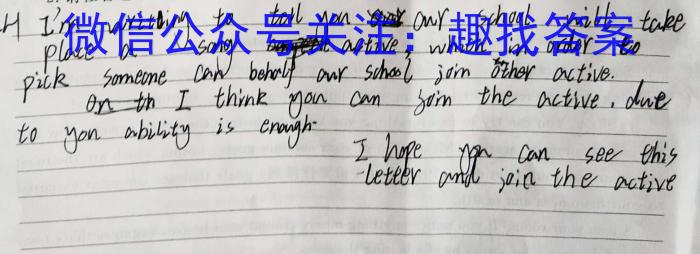 H I'm writing to tell you our school will take
微信公众号关注：趣找答案
place a song active, which in order to
pick someone can behalf our school join other active.
On th I think you can join the active, due
to you ability is enough.
I hope you can see this
letter and join the active